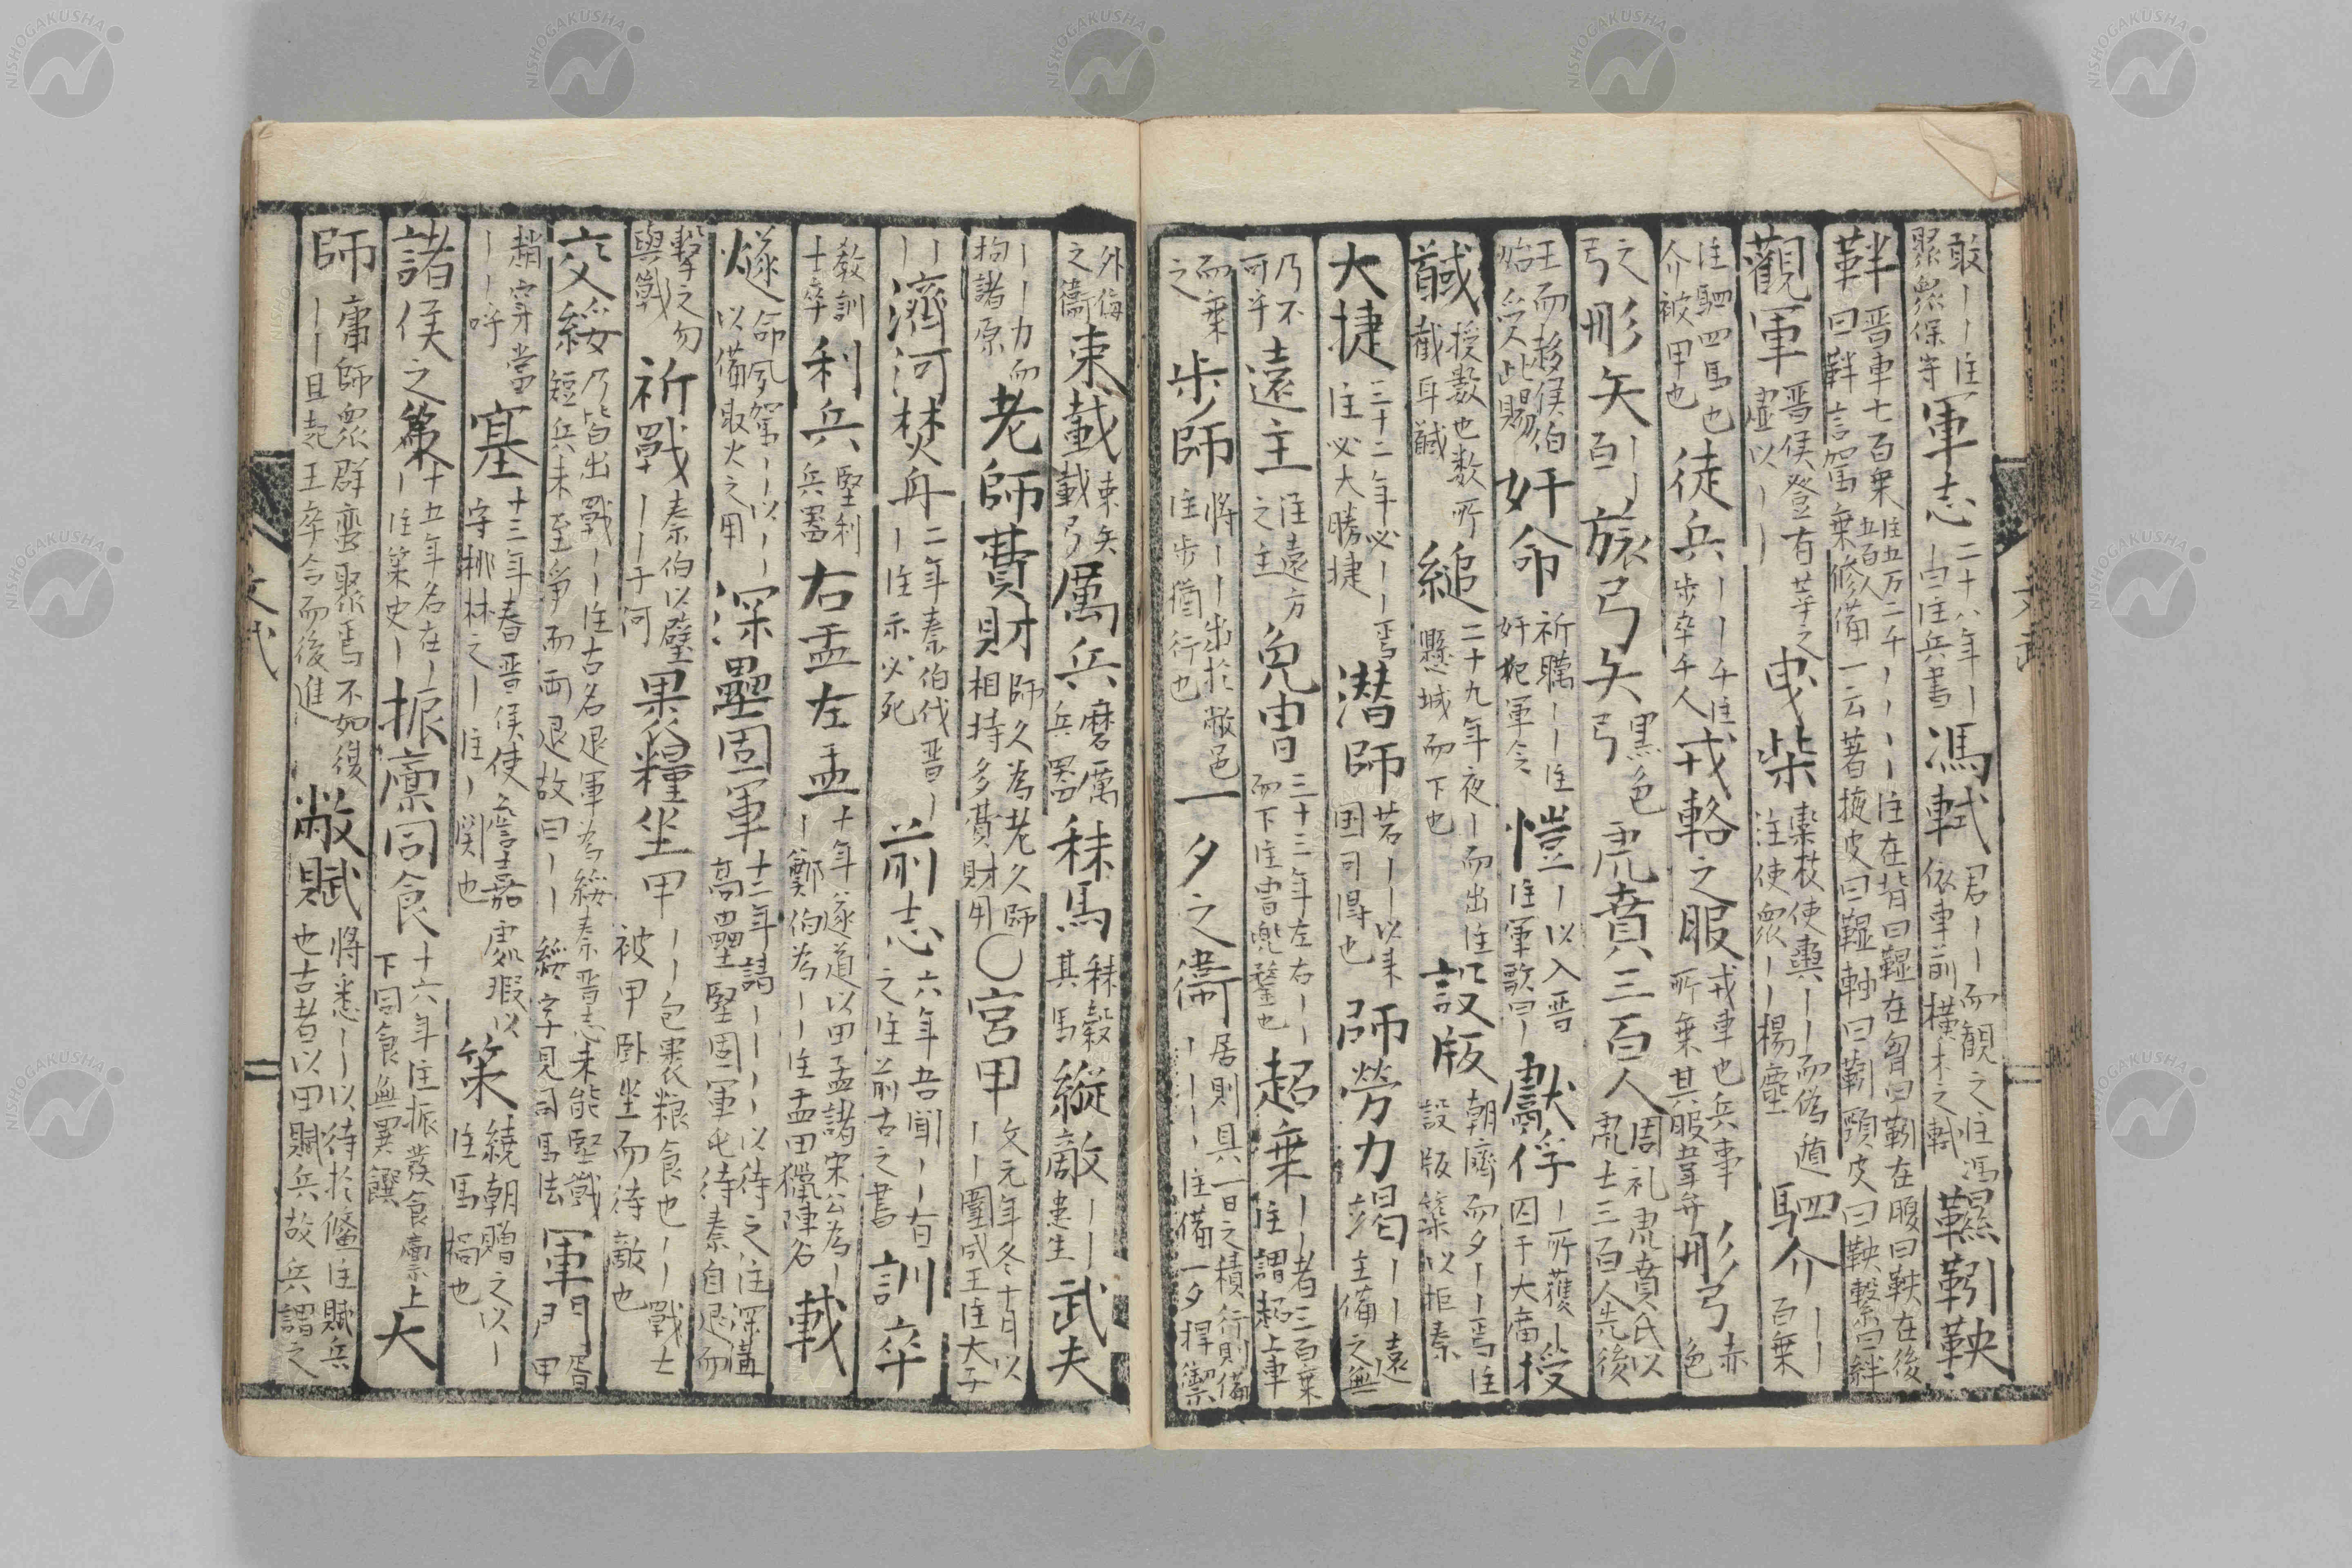 敢丨丨注聚眾保守軍志二十八年丨曰注兵書馮軾君丨丨而観之注馮依車前横木之軾韅靷鞅
靽晋車七百乗注五万二千五百人丨丨丨丨注在背曰韅在胷曰靷在腹曰鞅在後曰靽言駕乗修備一云著掖皮曰韅軸曰靷頸皮曰鞅繫曰絆
觀軍晋侯登有莘之虚以丨丨曳柴欒枝使輿丨丨而偽遁注使眾丨丨楊塵駟介丨丨百乗
注駟四馬也介被甲也徒兵丨丨丨千注歩卒千人戎輅之服戎車也兵事所乗其服韋弁彤弓赤色
之弓彤矢丨丨百玈弓矢黒色弓虎賁三百人周礼虎賁氏以虎士三百人先後
王而趍侯伯始受此賜奸命祈瞞丨丨注奸犯軍令愷丨以入晋注軍歌曰丨獻俘丨所獲丨囚于大廟授
馘授数也数所截耳馘縋二十九年夜丨而出注懸城而下也設版朝濟而夕丨丨焉注設版築以拒秦
大捷三十二年必丨丨焉注必大勝捷潜師若丨丨以来国可得也師勞力竭丨丨丨遠主備之無
乃不可乎遠主注遠方之主免冑三十三年左右丨丨而下注冑兜鍪也超乗丨丨者三百乗注謂超上車
而乗之歩師将丨丨出於敝邑注歩猶行也一夕之衛居則具一日之積行則備丨丨丨丨注備一夕捍禦
外侮之衛束載束矢載弓厲兵磨厲兵器秣馬秣穀其馬縦敵丨丨患生武夫
丨丨力而拘諸原老師費財師久為老久師相持多費財用〇宮甲文元年冬十月以丨丨圍成王注大子
丨丨濟河焚舟二年秦伯伐晋丨丨注示必死前志六年吾聞丨丨有之注前古之書訓卒
教訓士卒利兵堅利兵器右盂左盂十年遂道以田孟諸宋公為丨丨鄭伯為丨丨注盂田獵陣名載
燧命夙駕丨丨以丨丨以備取火之用深壘固軍十二年請丨丨丨丨以待之注深溝高壘堅固軍屯待秦自退而
擊之勿與戰祈戰秦伯以璧丨丨于河裹糧坐甲丨丨包裹粮食也丨丨戰士被甲卧坐而待敵也
交綏乃皆出戰丨丨注古名退軍為綏秦晋志未能堅戰短兵未至争而両退故曰丨丨綏字見司馬法軍門胥甲
趙穿當丨丨呼塞十三年春晋侯使詹嘉處瑕以守桃林之丨注丨関也策繞朝贈之以丨注馬檛也
諸侯之策十五年名在丨丨注策史丨振廩同食十六年注振發食廩上下同食無異饌大
師庸師眾群蛮聚焉不如復丨丨且起王卒合而後進敝賦将悉丨丨以待於鯈注賦兵也古者以田賦兵故兵謂之